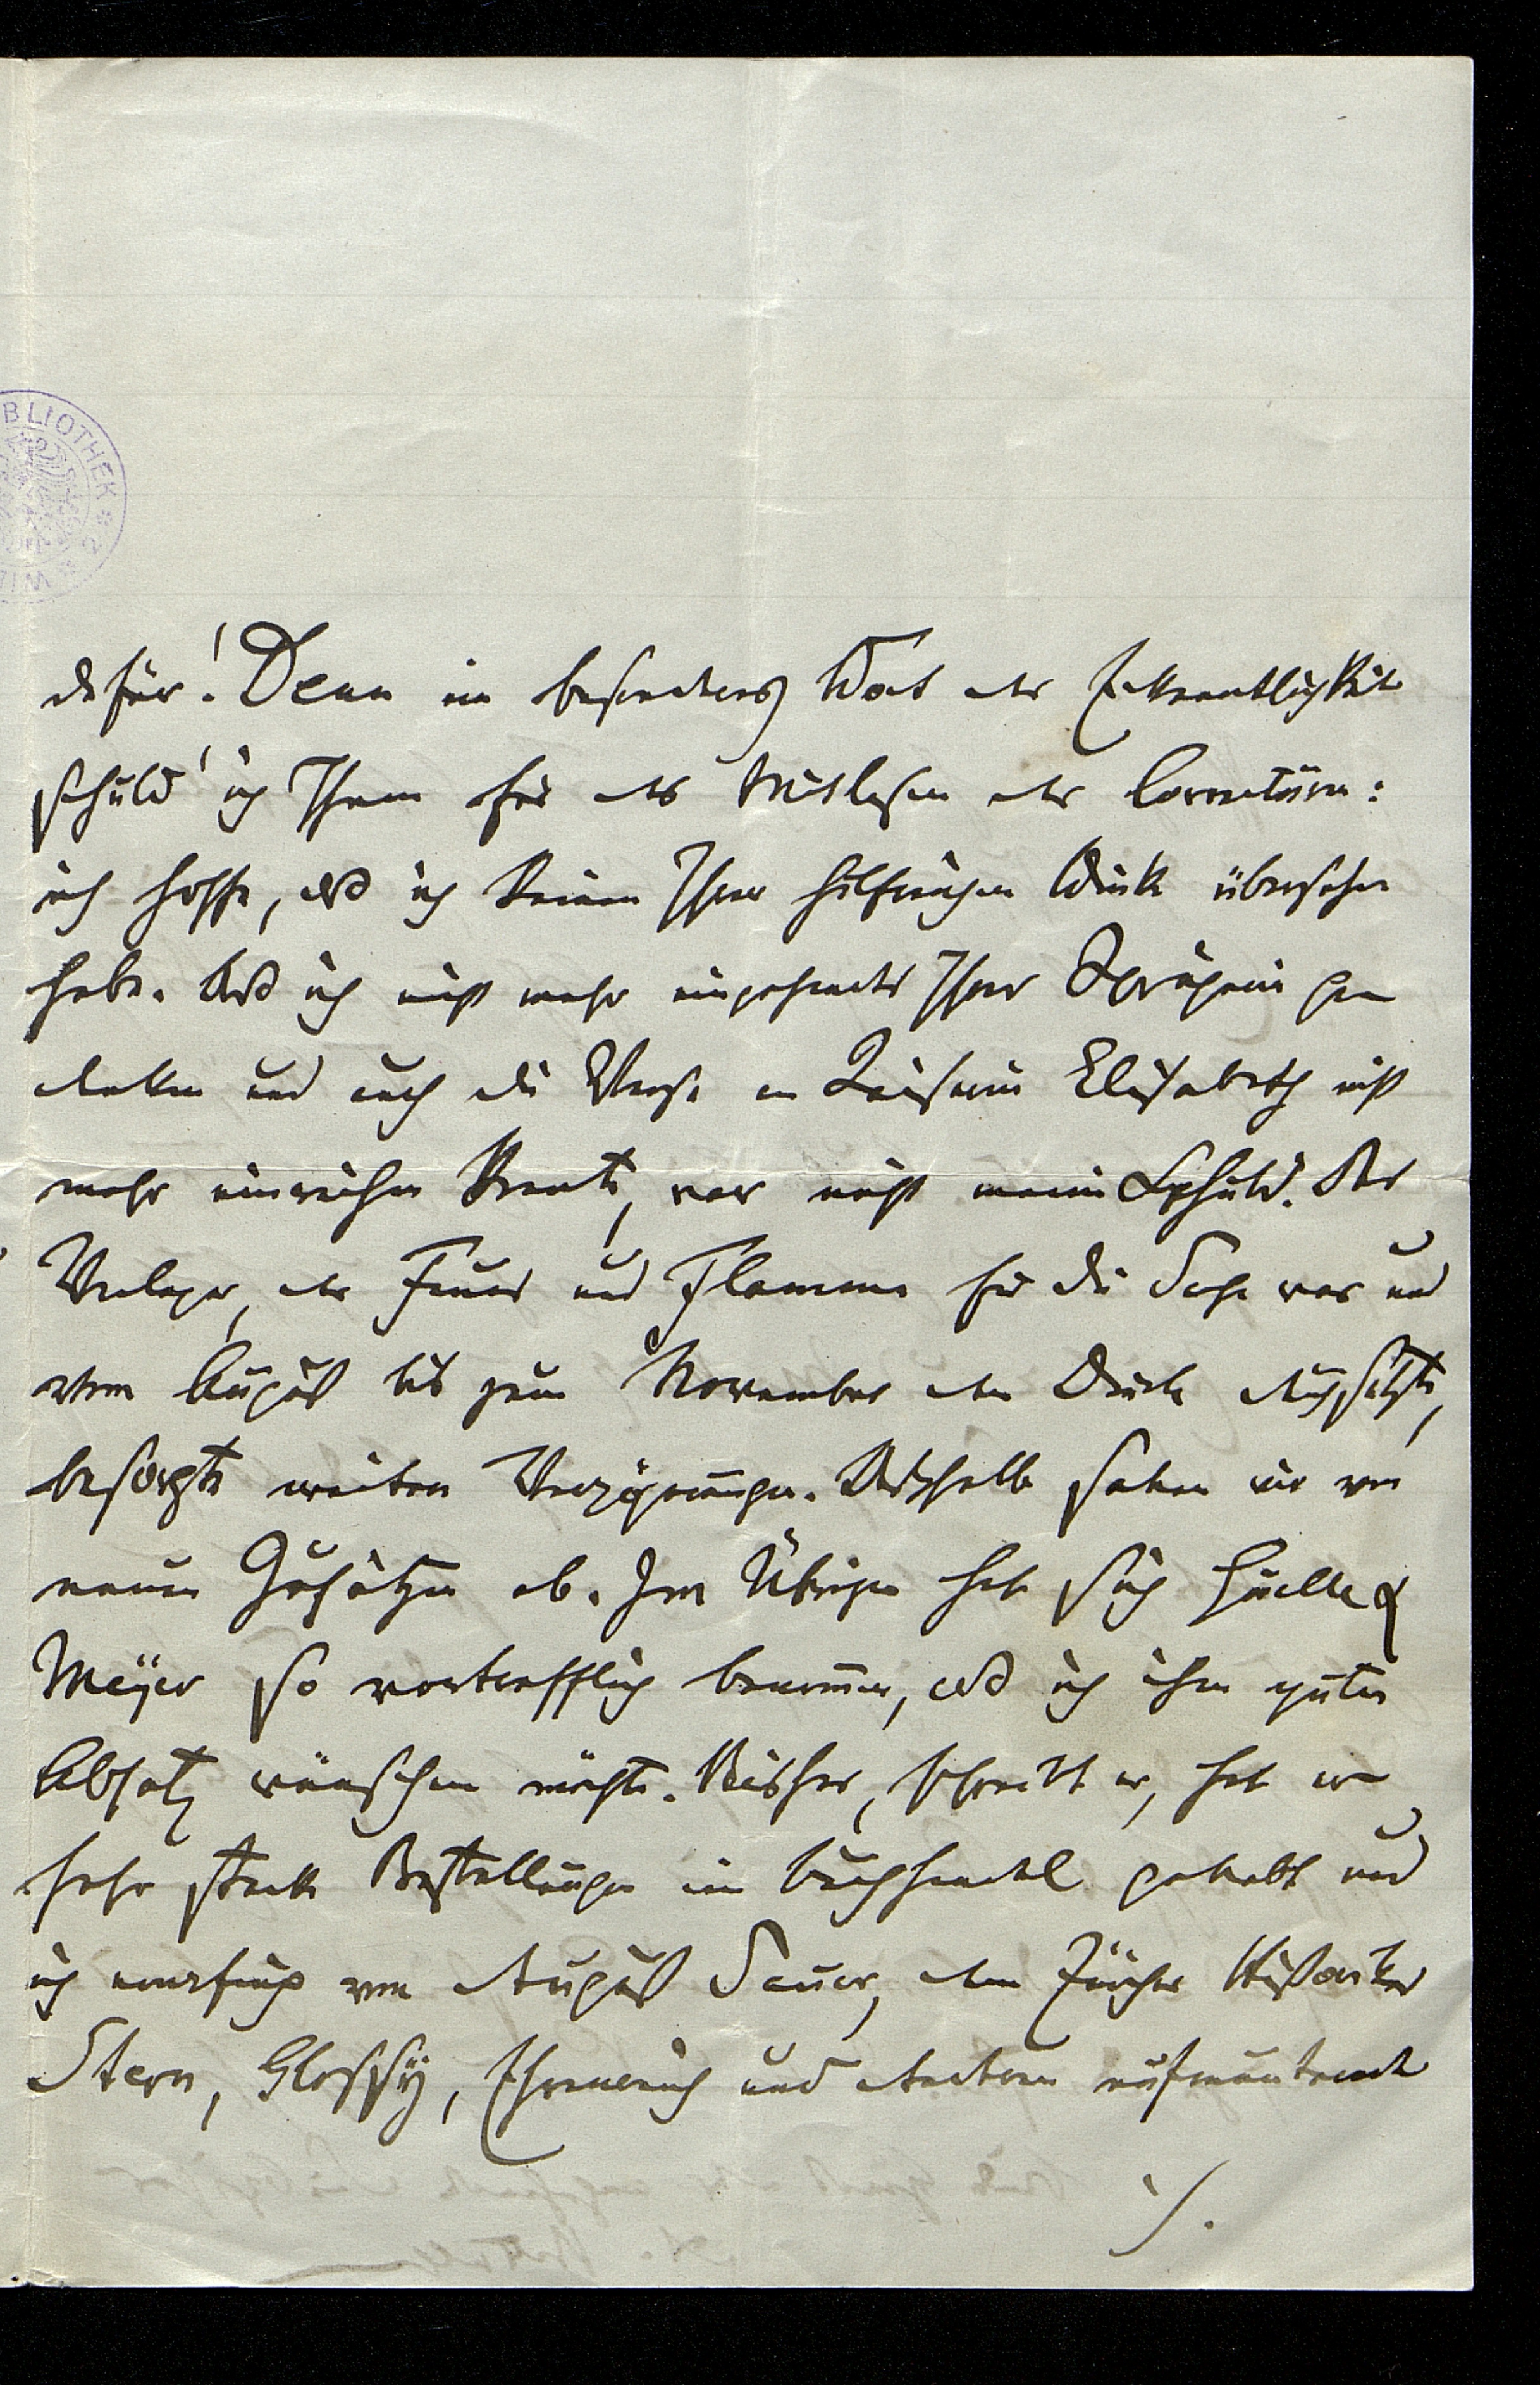 BLIOTHEK
WIEN
dafür! Denn ein besonderes Wort der Erkenntlichkeit
schuld' ich Ihnen für das Mitlesen der Correcturen:
ich hoffe, daß ich keinen Ihrer hilfreichen Winke übersehen
habe. Daß ich nicht mehr eingehender Ihrer
denken und auch die Verse an Kaiserin Elisabeth nicht
mehr einreihen konnte, war nicht meine Schuld. Der
Verleger, der Feuer und Flamme für die Sache war und
vom August bis zum November den Druck durchsetzte,
besorgte weitere Verzögerungen. Deshalb sahen wir von
neuen Zusätzen ab. Im Übrigen hat sich Quelle &
Meyer so vortrefflich benommen, daß ich ihm guten
Absatz wünschen möchte. Bisher, schreibt er, hat er
sehr starke Bestellungen im Buchhandel gehabt und
ich empfing von August Sauer, dem Züricher Historiker
Stern, Glossy, und Andern aufmunternde
./.